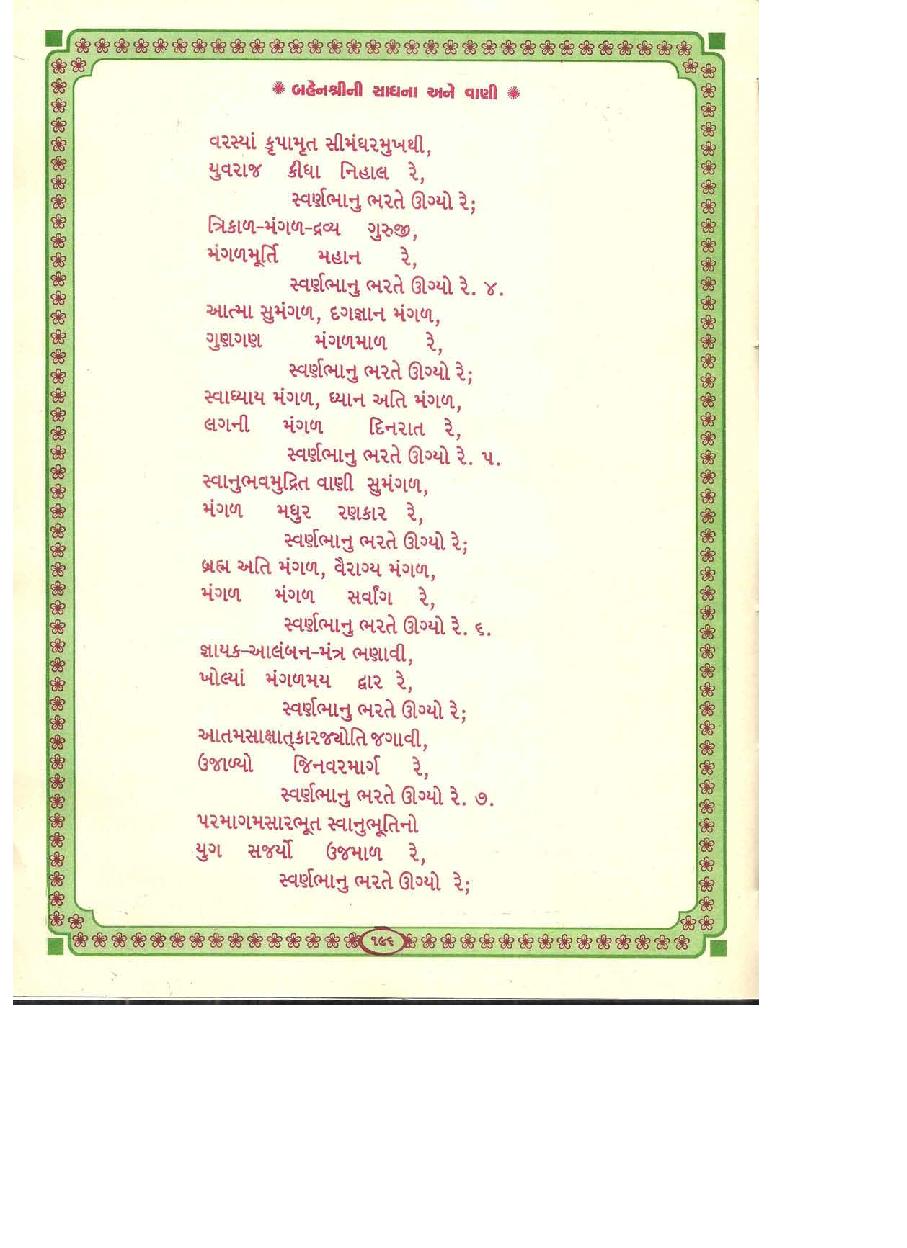 બહેનશ્રીની સાધના અને વાણી
વરસ્યાં કૃપામૃત સીમંધરમુખથી,
યુવરાજ કીધા નિહાલ રે,
સ્વર્ણભાનુ ભરતે ઊગ્યો રે;
ત્રિકાળ-મંગળ-દ્રવ્ય ગુરુજી,
મંગળમૂર્તિ મહાન રે,
સ્વર્ણભાનુ ભરતે ઊગ્યો રે. ૪.
આત્મા સુમંગળ, દગજ્ઞાન મંગળ,
ગુણગણ મંગળમાળ રે,
સ્વર્ણભાનુ ભરતે ઊગ્યો રે;
સ્વાધ્યાય મંગળ, ધ્યાન અતિ મંગળ,
લગની મંગળ દિનરાત રે,
સ્વર્ણભાનુ ભરતે ઊગ્યો રે. ૫.
સ્વાનુભવમુદ્રિત વાણી સુમંગળ,
મંગળ મધુર રણકાર રે,
સ્વર્ણભાનુ ભરતે ઊગ્યો રે;
બ્રહ્મ અતિ મંગળ, વૈરાગ્ય મંગળ,
મંગળ મંગળ સર્વાંગ રે,
સ્વર્ણભાનુ ભરતે ઊગ્યો રે. ૬.
જ્ઞાયક-આલંબન-મંત્ર ભણાવી,
ખોલ્યાં મંગળમય દ્વાર રે,
સ્વર્ણભાનુ ભરતે ઊગ્યો રે;
આતમસાક્ષાત્કારજ્યોતિ જગાવી,
ઉજાળ્યો જિનવરમાર્ગ રે,
સ્વર્ણભાનુ ભરતે ઊગ્યો રે. ૭.
પરમાગમસારભૂત સ્વાનુભૂતિનો
યુગ સર્જ્યો ઉજમાળ રે,
સ્વર્ણભાનુ ભરતે ઊગ્યો રે;
૧૯૬